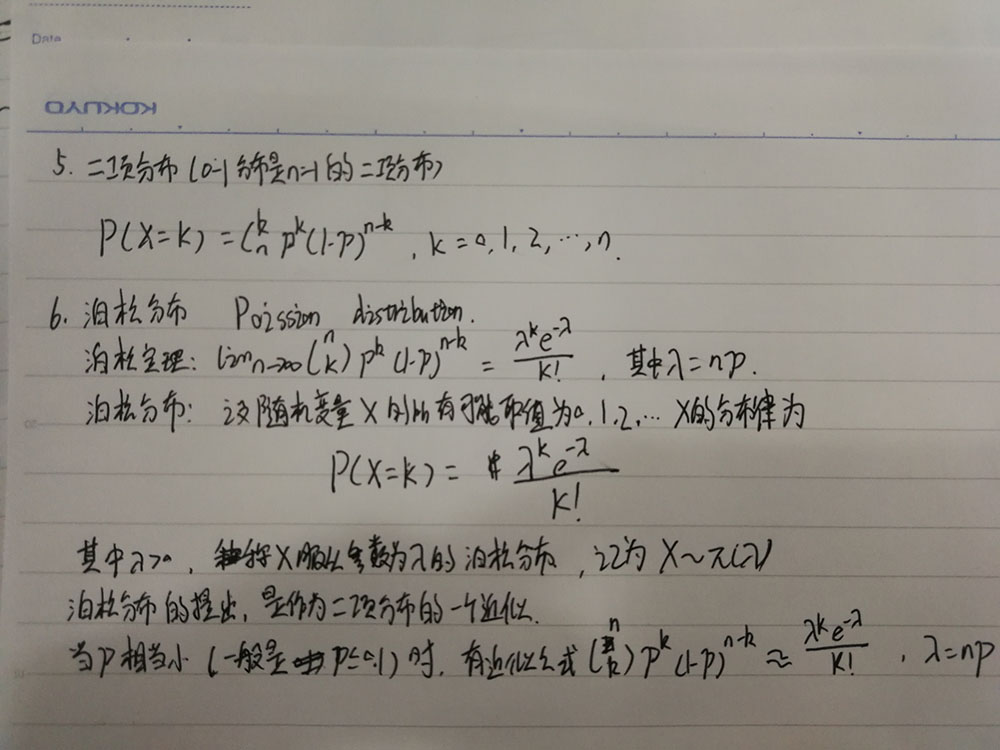 Date
KOKUYO
5. 二项分布 (0-1分布是n=1的二项分布)
P(X=k) = C_n^k p^k (1-p)^{n-k} , k=0, 1, 2, ⋯, n.
6. 泊松分布 Poission distribution.
泊松定理: lim_{n→∞} (n k) p^k (1-p)^{n-k} = λ^k e^{-λ} / k! , 其中λ=np.
泊松分布: 设随机变量X的所有可能取值为0, 1, 2, ⋯ X的分布律为
P(X=k) = λ^k e^{-λ} / k!
其中λ>0, 称X服从参数为λ的泊松分布, 记为X~π(λ)
泊松分布的提出, 是作为二项分布的一个近似.
当p相当小 (一般是p≤0.1) 时, 有近似公式 (n k) p^k (1-p)^{n-k} ≈ λ^k e^{-λ} / k! , λ=np